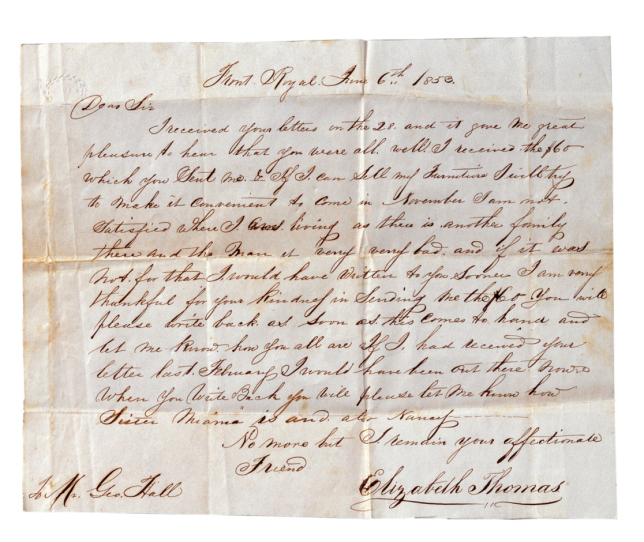 Front Royal. June 6th 1853.
Dear Sir
I received your letters on the 28. and it give me great
pleasure to hear that you were all well. I received the $60
which you Sent me. & If I can Sell my Furniture I will try
to make it convenient to come in November I am not
Satisfied where I am living as there is another family
there and the Man is very very bad. and if it was
not for that I would have written to you Sooner I am very
thankful for your kindness in Sending me the $60 You will
please write back as soon as this comes to hand and
let me know how you all are If I had received your
letter last February I would have been out there now.
When you Write Back you will please let me know how
Sister is and also Nancy
No more but I remain your affectionate
Friend
Elizabeth Thomas
To Mr. Geo. Hall